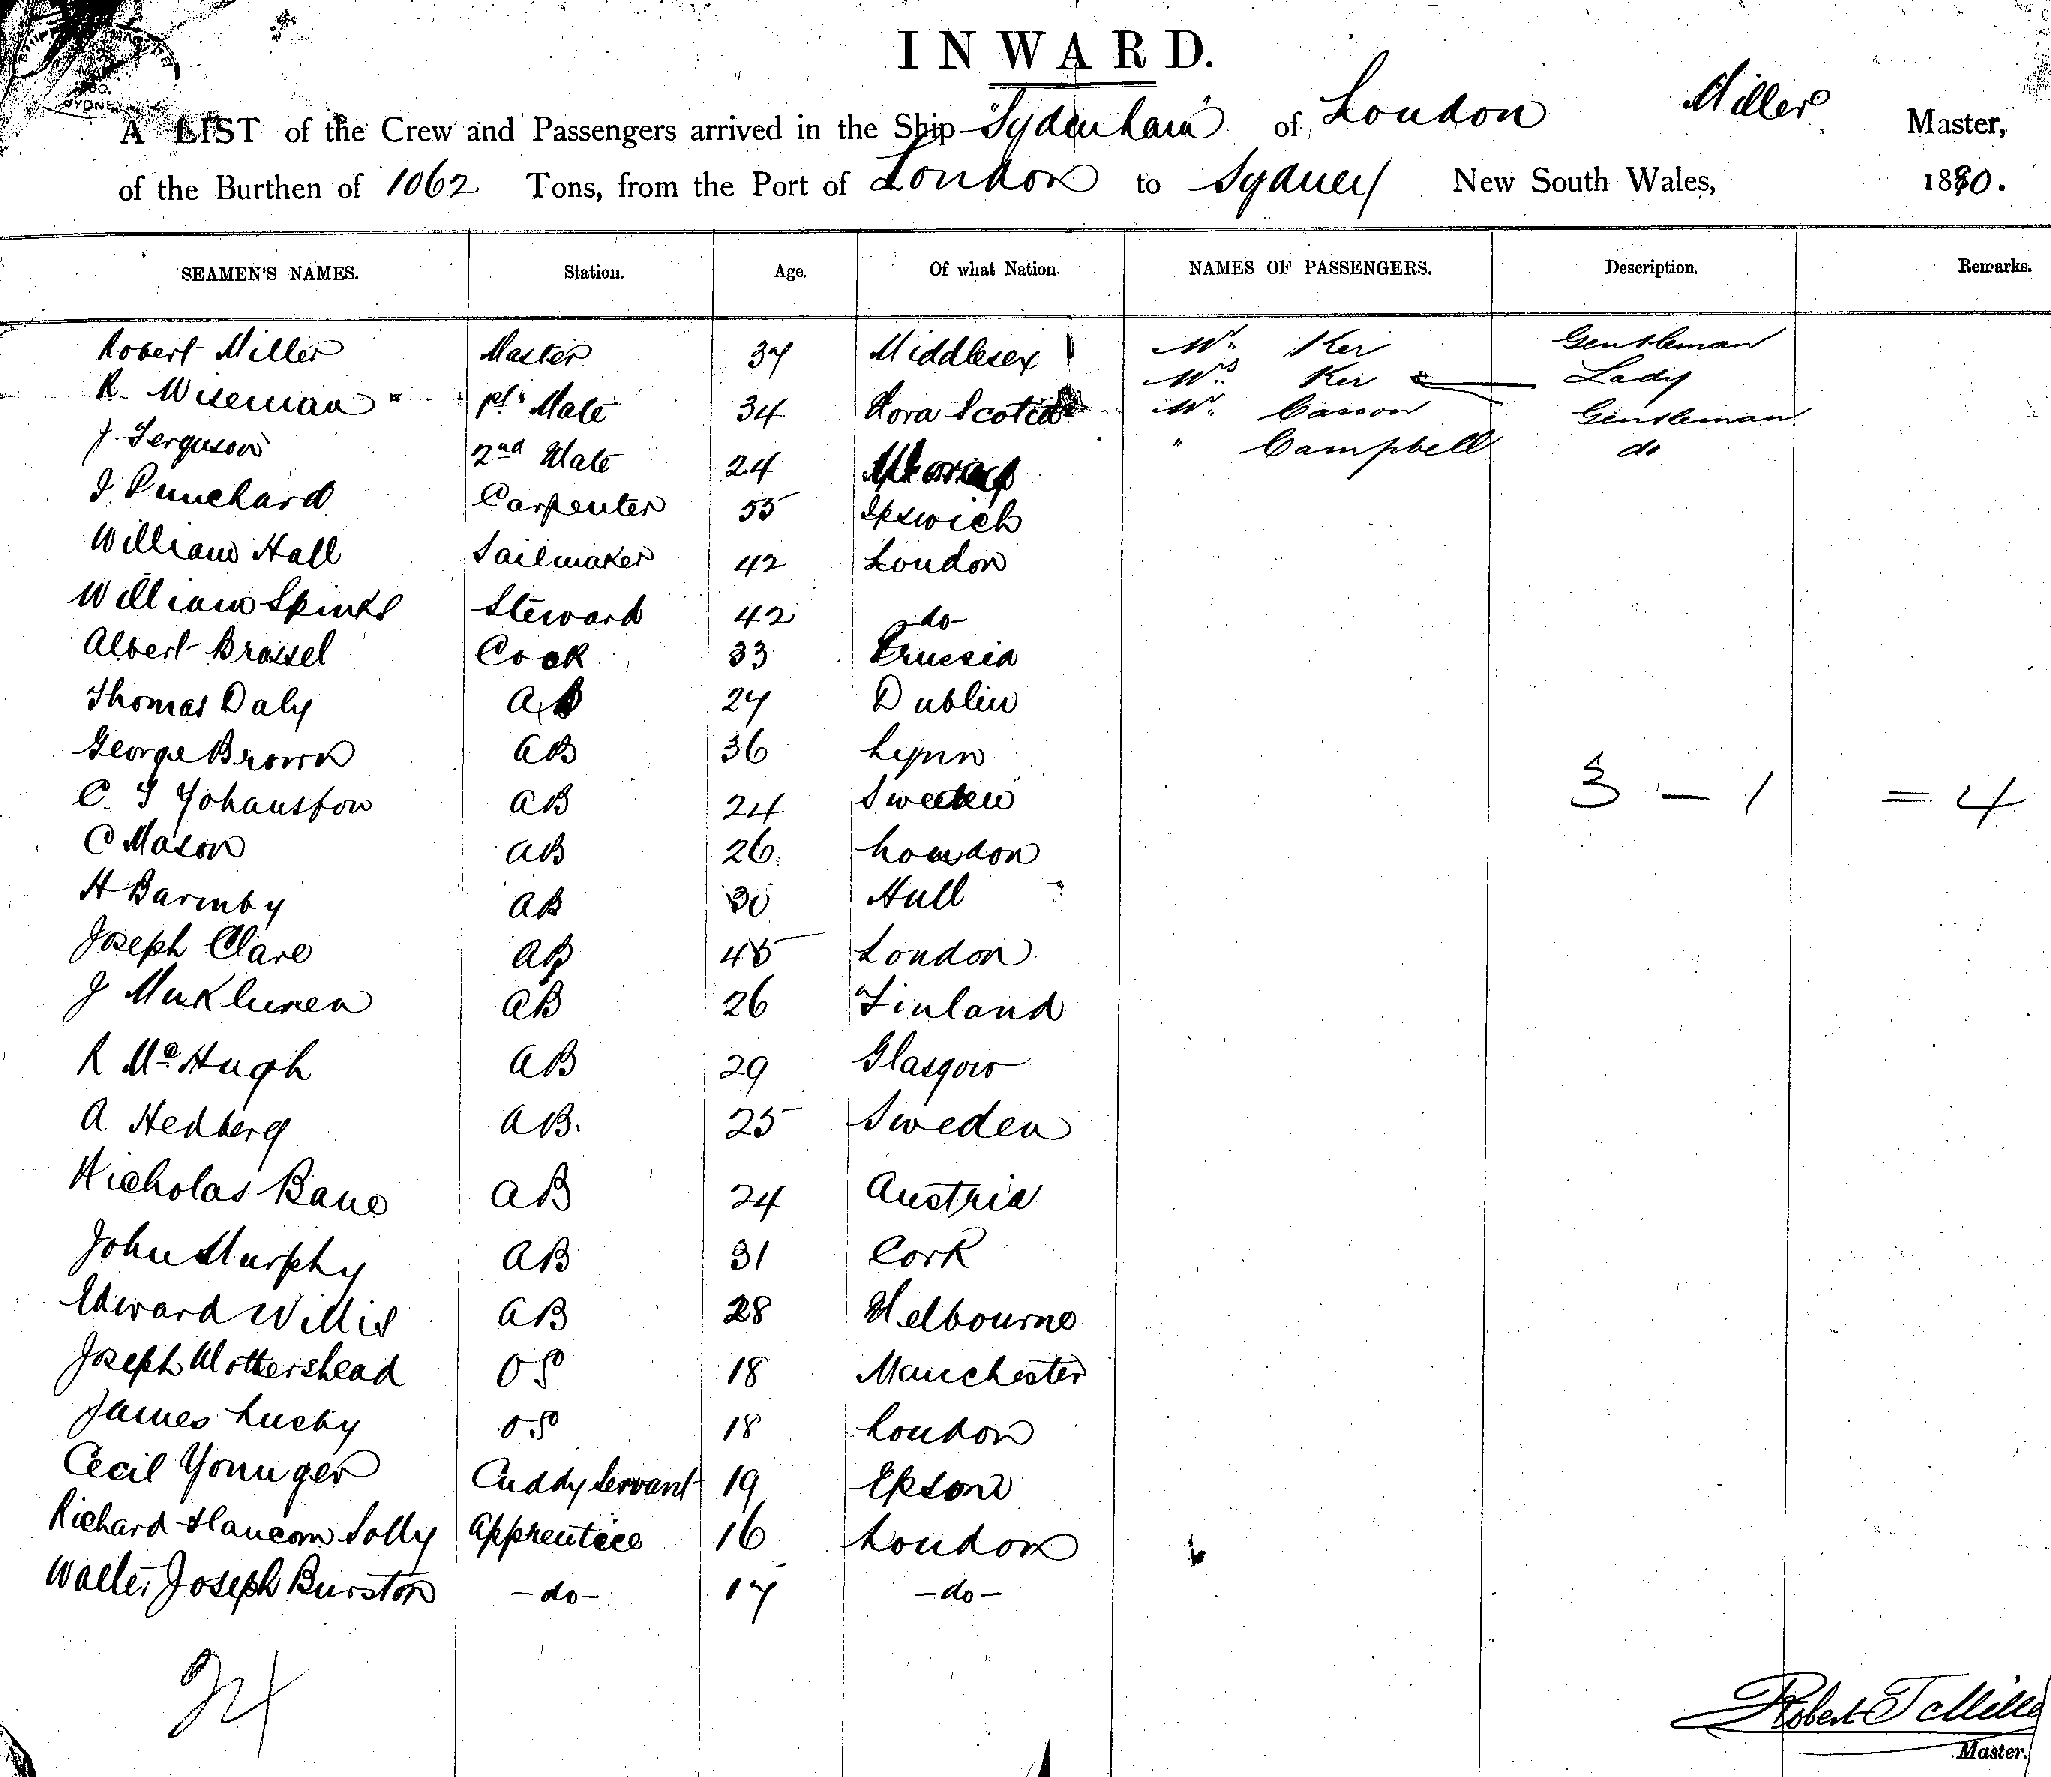 INWARD.
A LIST of the Crew and Passengers arrived in the Ship "Sydenham" of London Miller Master,
of the Burthen of 1062 Tons, from the Port of London to Sydney New South Wales, 1880.
SEAMEN'S NAMES. Station. Age. Of what Nation. NAMES OF PASSENGERS. Description. Remarks.
Robert Miller Master 37 Middlesex Mr. Ker Gentleman
R. Wiseman 1st Mate 34 Nova Scotia Mrs. Ker Lady
J. Ferguson 2nd Mate 24 Mr. Casson Gentleman
" Campbell do
J. Punchard Carpenter 55 Ipswich
William Hall Sailmaker 42 London
William Spinks Steward 42 do
Albert Brassel Cook 33 Prussia
Thomas Daly AB 27 Dublin
George Brown AB 36 Lynn
C. J Yohanston AB 24 Sweden 3 — 1 = 4
C Mason AB 26 London
H Barmby AB 30 Hull
Joseph Clare AB 45 London
J AB 26 Finland
R McHugh AB 29 Glasgow
A. Hedberg AB. 25 Sweden
Nicholas Bane AB 24 Austria
John Murphy AB 31 Cork
Edward Willis AB 28 Melbourne
Joseph Mottershead OS 18 Manchester
James Lucky OS 18 London
Cecil Younger Cuddy Servant 19 Epsom
Richard Hancorn Solly Apprentice 16 London
Walter Joseph Burston - do - 17 - do -
24
Robert T Miller
Master.